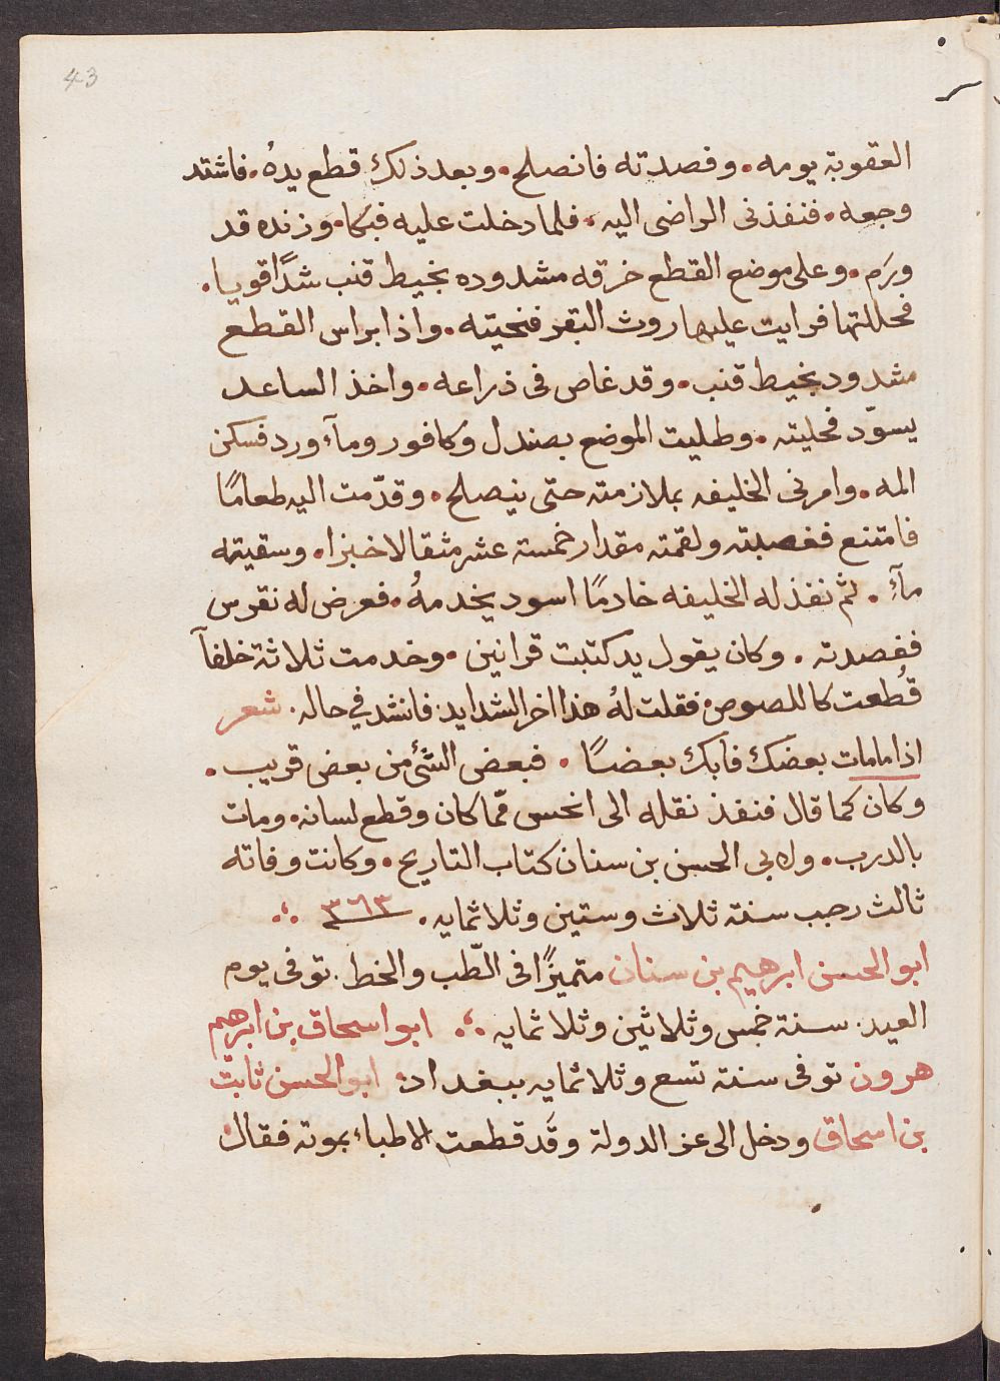 43
العقوبة يومه. وفصدته فانصلح. وبعد ذلك قطع يدهُ. فاشتد
وجعه. فنفذنى الراضى اليه. فلما دخلت عليه فبكا. وزنده قد
ورَم. وعلى موضع القطع خرقه مشدوده بخيط قنب شدًا قويا.
فحللتها فرايت عليها روث البقر فنحيته. واذا براس القطع
مشدود بخيط قنب. وقد غاص فى ذراعه. واخذ الساعد
يسوّد فحليته. وطليت الموضع بصندل وكافور ومآء ورد فسكن
المه. وامرنى الخليفه بملازمته حتى ينصلح. وقدّمت اليه طعامًا
فامتنع فغصبته ولقمته مقدار خمسة عشر مثقالا خبزا. وسقيته
مآءً. ثم نفذ له الخليفه خادمًا اسود يخدمهُ. فعرض له نقرس
ففصدته. وكان يقول يد كتبت قرانين. وخدمت ثلاثة خلفآ
قُطعت كاللصوص. فقلت لهُ هذا اخر الشدايد. فانشد في حاله. شعر
اذا مامات بعضك فابك بعضًا. فبعض الشئ من بعض قريب.
وكان كما قال فنفذ نقله الى انحس ممّا كان وقطع لسانه. ومات
بالدرب. ولابى الحسن بن سنان كتاب التاريخ. وكانت وفاته
ثالث رجب سنة ثلاث وستين وثلاثمايه. ٣٦٣
ابو الحسن ابرهيم بن سنان متميزًا فى الطّب والخط. توفى يوم
العيد. سنة خمس وثلاثين وثلاثمايه. ابو اسحاق بن ابرهيم
هرون توفى سنة تسع وثلاثمايه ببغداد. ابو الحسن ثابت
بن اسحاق ودخل الى عز الدولة وقَد قطعت الاطباء بموته فقال